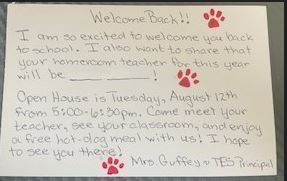 Welcome Back!!
I am so excited to welcome you back
to school. I also want to share that
your homeroom teacher for this year
will be ___ ___!
Open House is Tuesday, August 12th
from 5:00-6:30pm. Come meet your
teacher, see your classroom, and enjoy
a free hot-dog meal with us! I hope
to see you there!
Mrs. Guffey ~ TES Principal